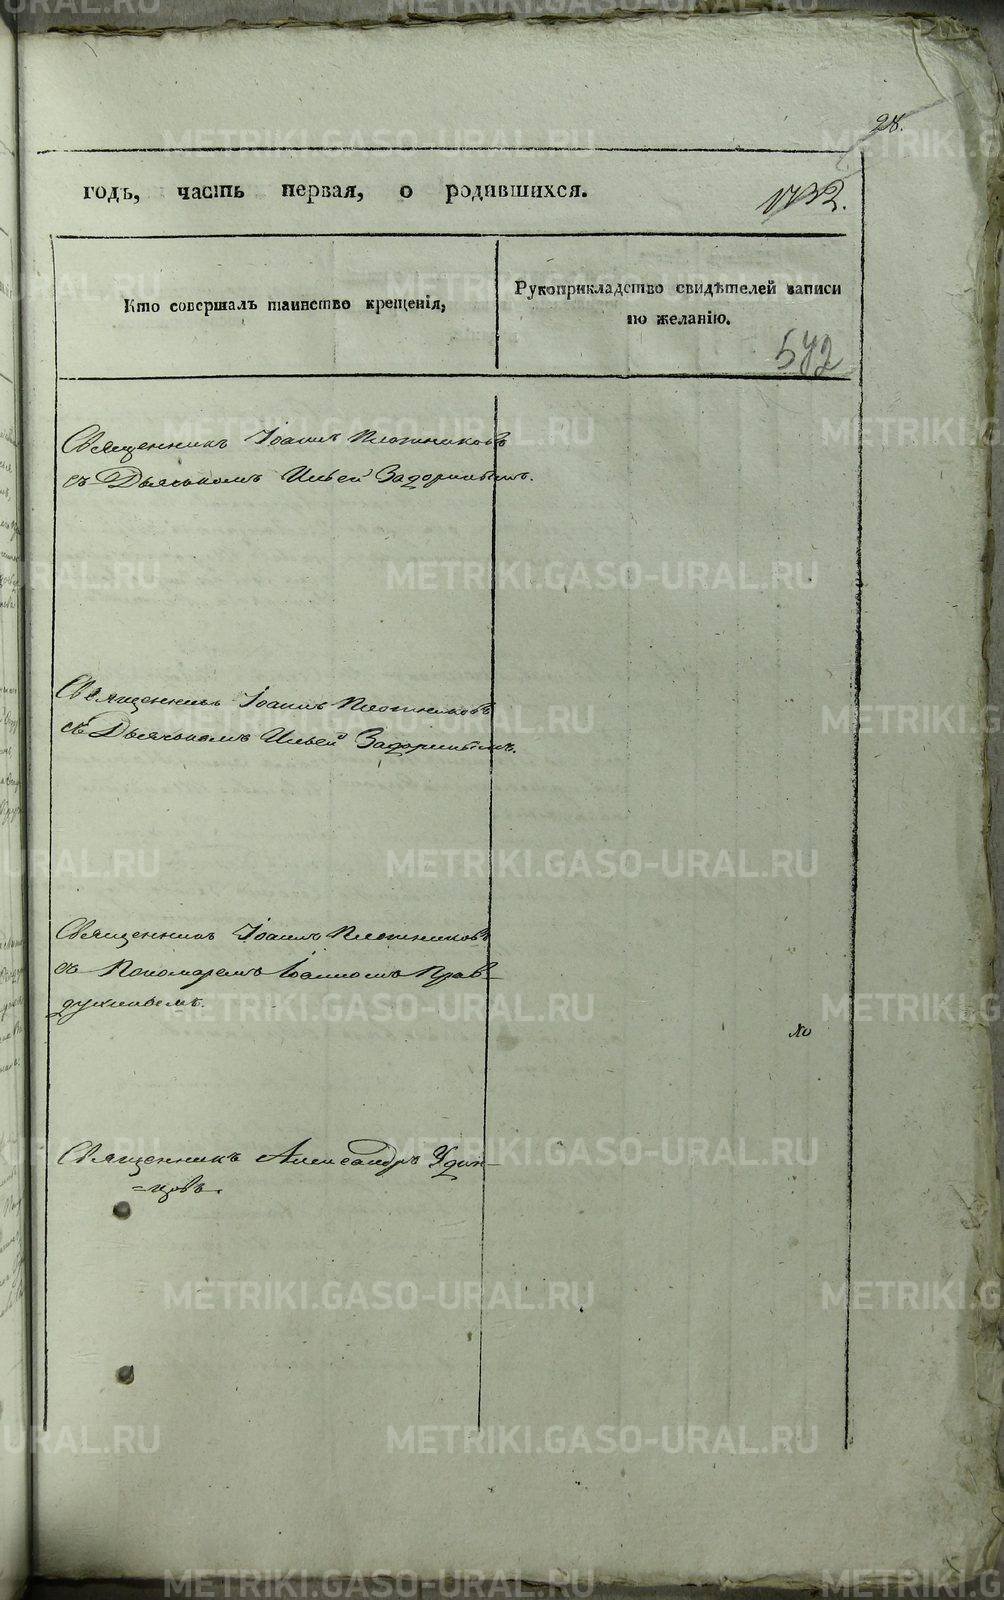 28.
годъ, часть первая, о родившихся.
1732.
Кто совершалъ таинство крещенія,
Рукоприкладство свидѣтелей записи
по желанію.
572
Священникъ Іоаннъ Плотниковъ
съ Дьякономъ Ильей Задоринымъ.
Священникъ Іоаннъ Плотниковъ
съ Дьякономъ Ильей Задоринымъ.
Священникъ Іоаннъ Плотниковъ
съ Пономаремъ Іоанномъ Прав-
духинымъ.
№
Священникъ Александръ Удин-
=цовъ.
METRIKI.GASO-URAL.RU